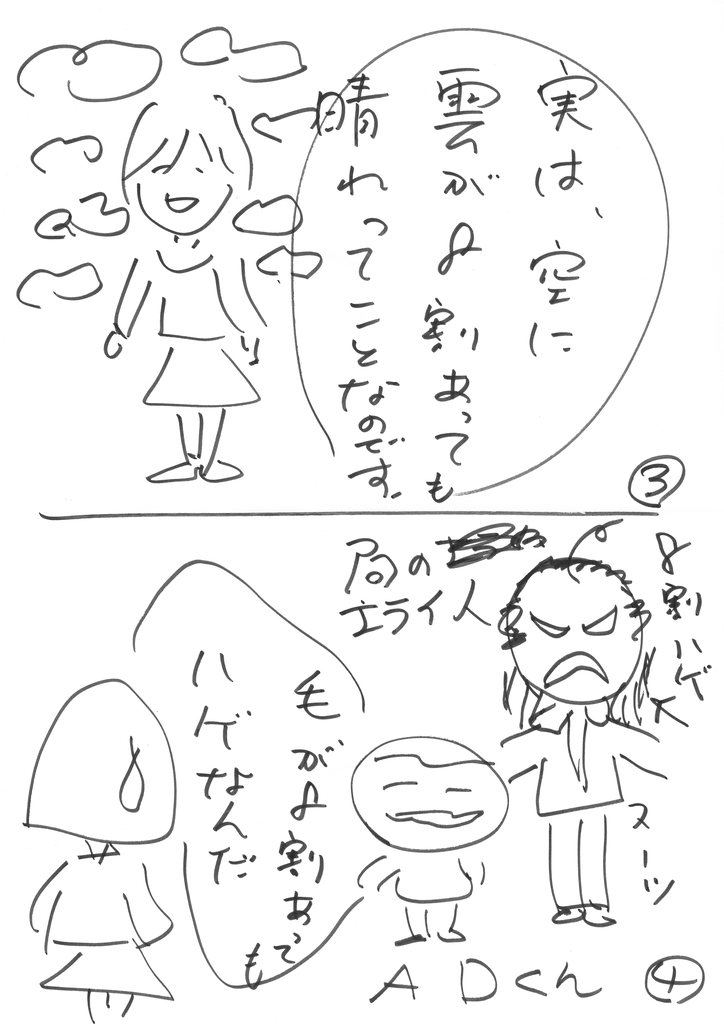 実は、空に
雲が8割あっても
晴れってことなのです。
③
8割ハゲ
局の
エライ人
毛が8割あっても
ハゲなんだ
スーツ
ADくん
④